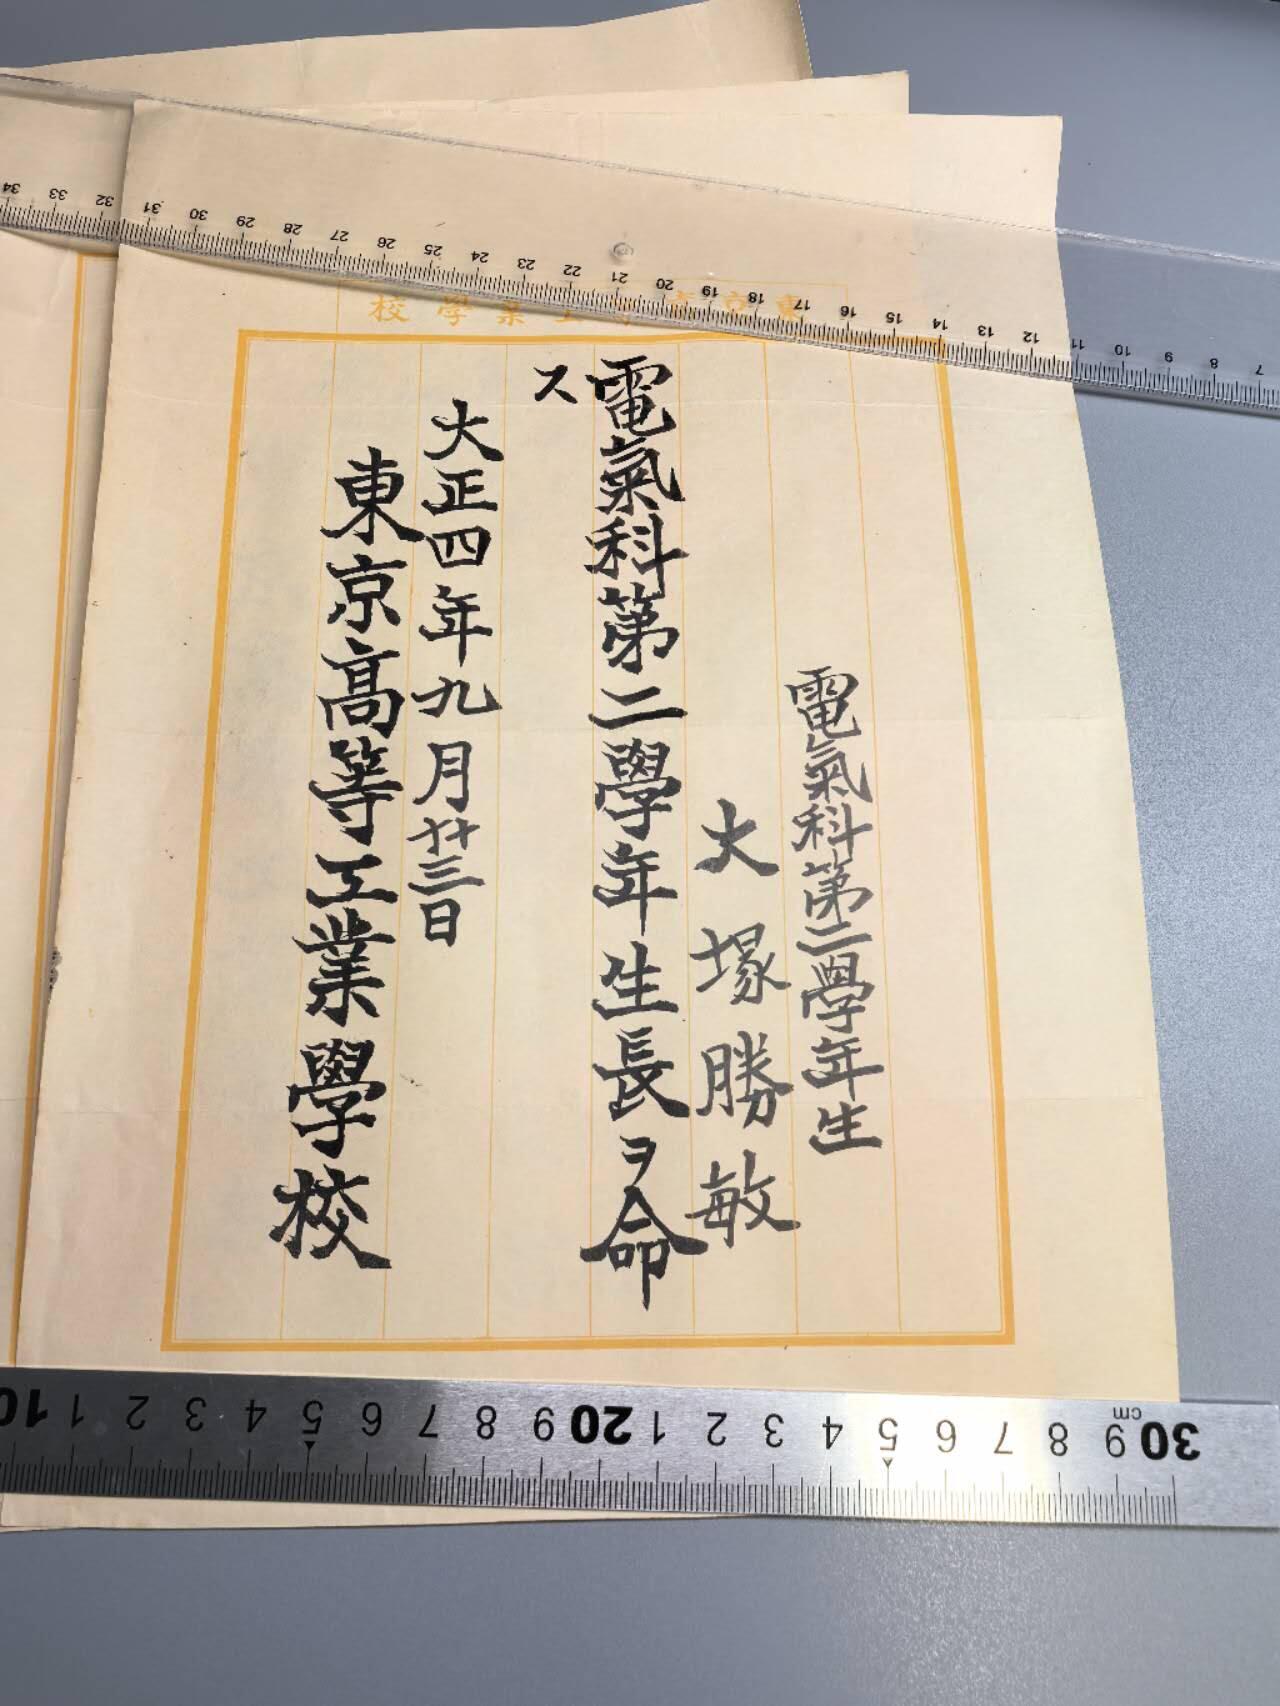 東京高等工業學校
電氣科第二學年生
大塚勝敏
電氣科第二學年生長ヲ命
ス
大正四年九月廿三日
東京高等工業學校
34 33 32 31 30 29 28 27 26 25 24 23 22 21 20 19 18 17 16 15 14 13 12 11 10 9 8 7
10 1 2 3 4 5 6 7 8 9 20 1 2 3 4 5 6 7 8 9 30
cm